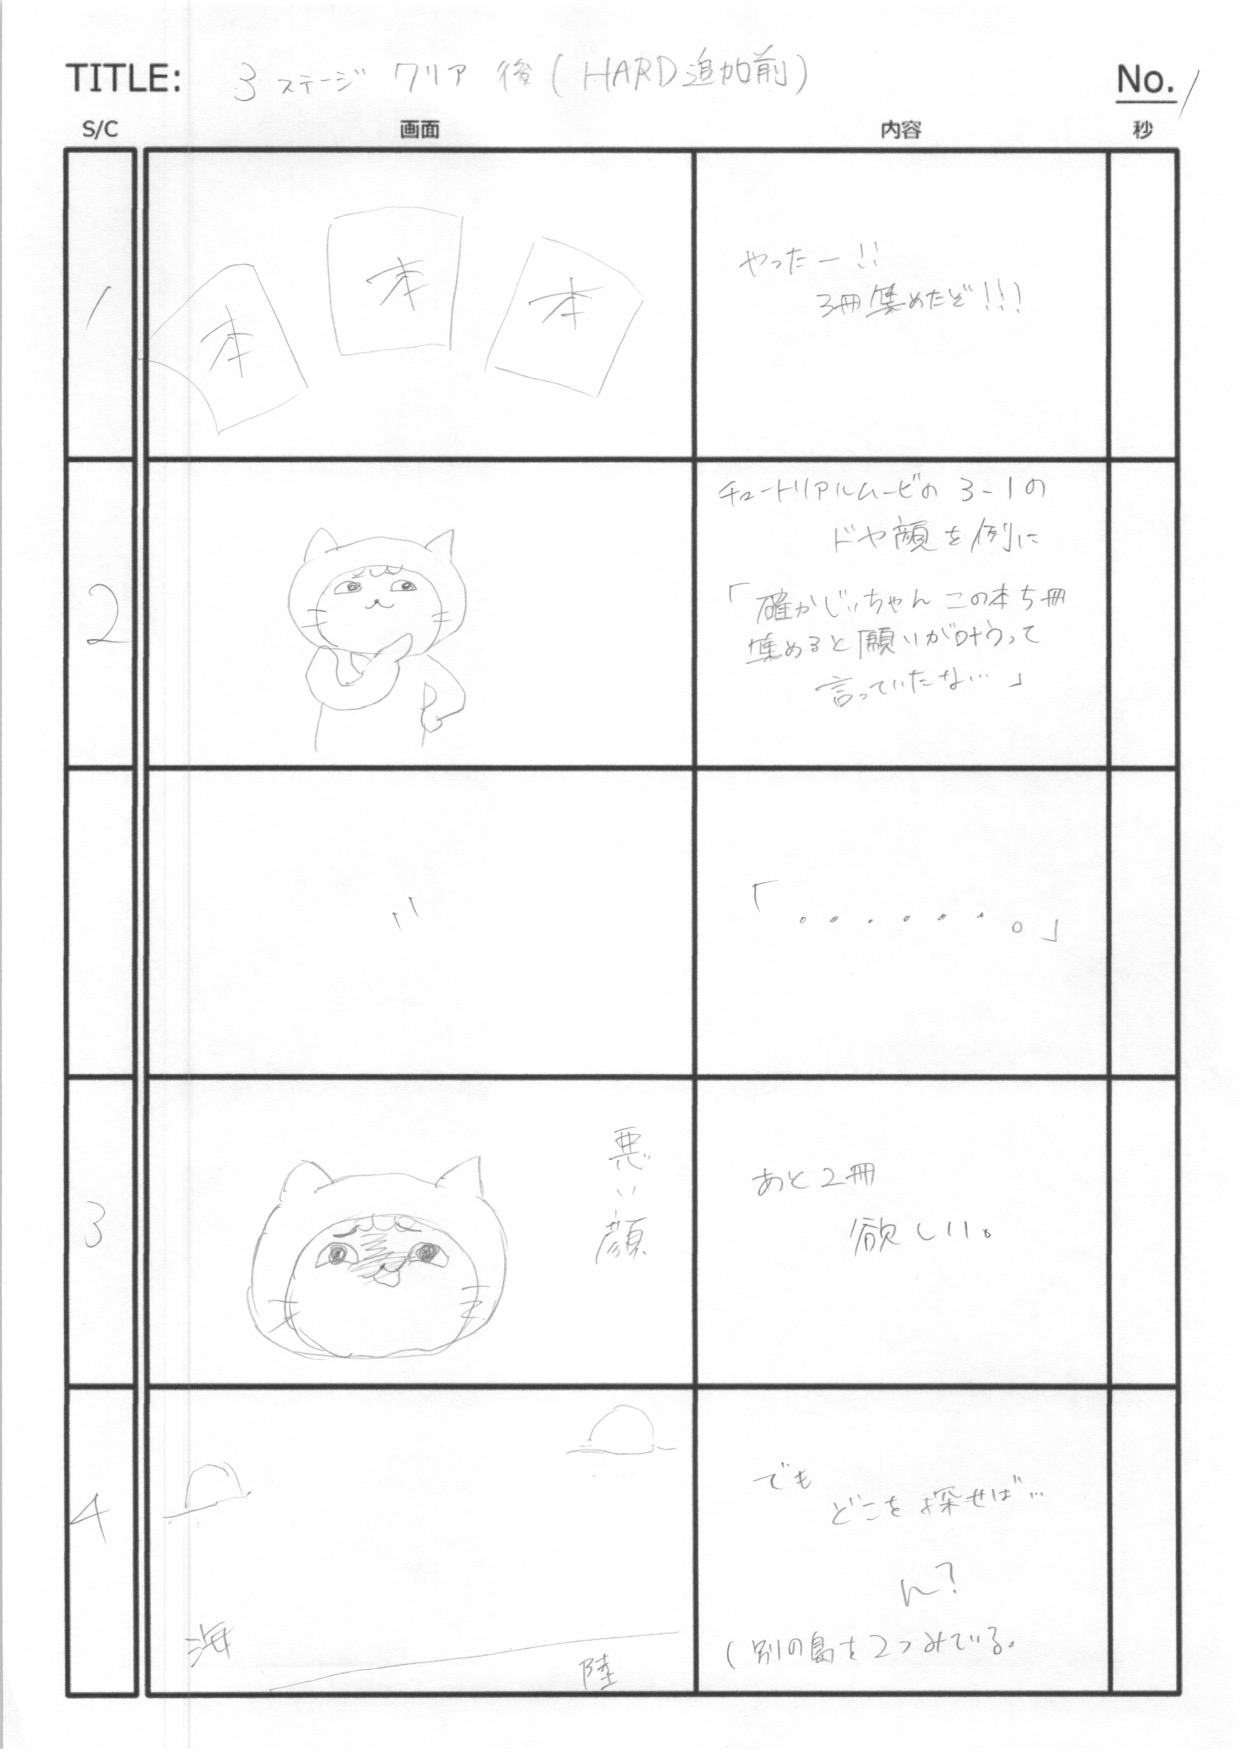 TITLE: 3ステージ クリア 後(HARD追加前)
No. 1
S/C 画面 内容 秒
1
本 本 本
やったー!!
3冊集めたぞ!!!
2
チュートリアルムービの 3-1の
ドヤ顔を例に
「確かじいちゃん この本5冊
集めると願いが叶うって
言っていたな…」
〃
「・・・・・・。」
3
悪い顔
あと2冊
欲しい。
4
海
陸
でも
どこを探せば…
ん?
(別の島を2つみている。